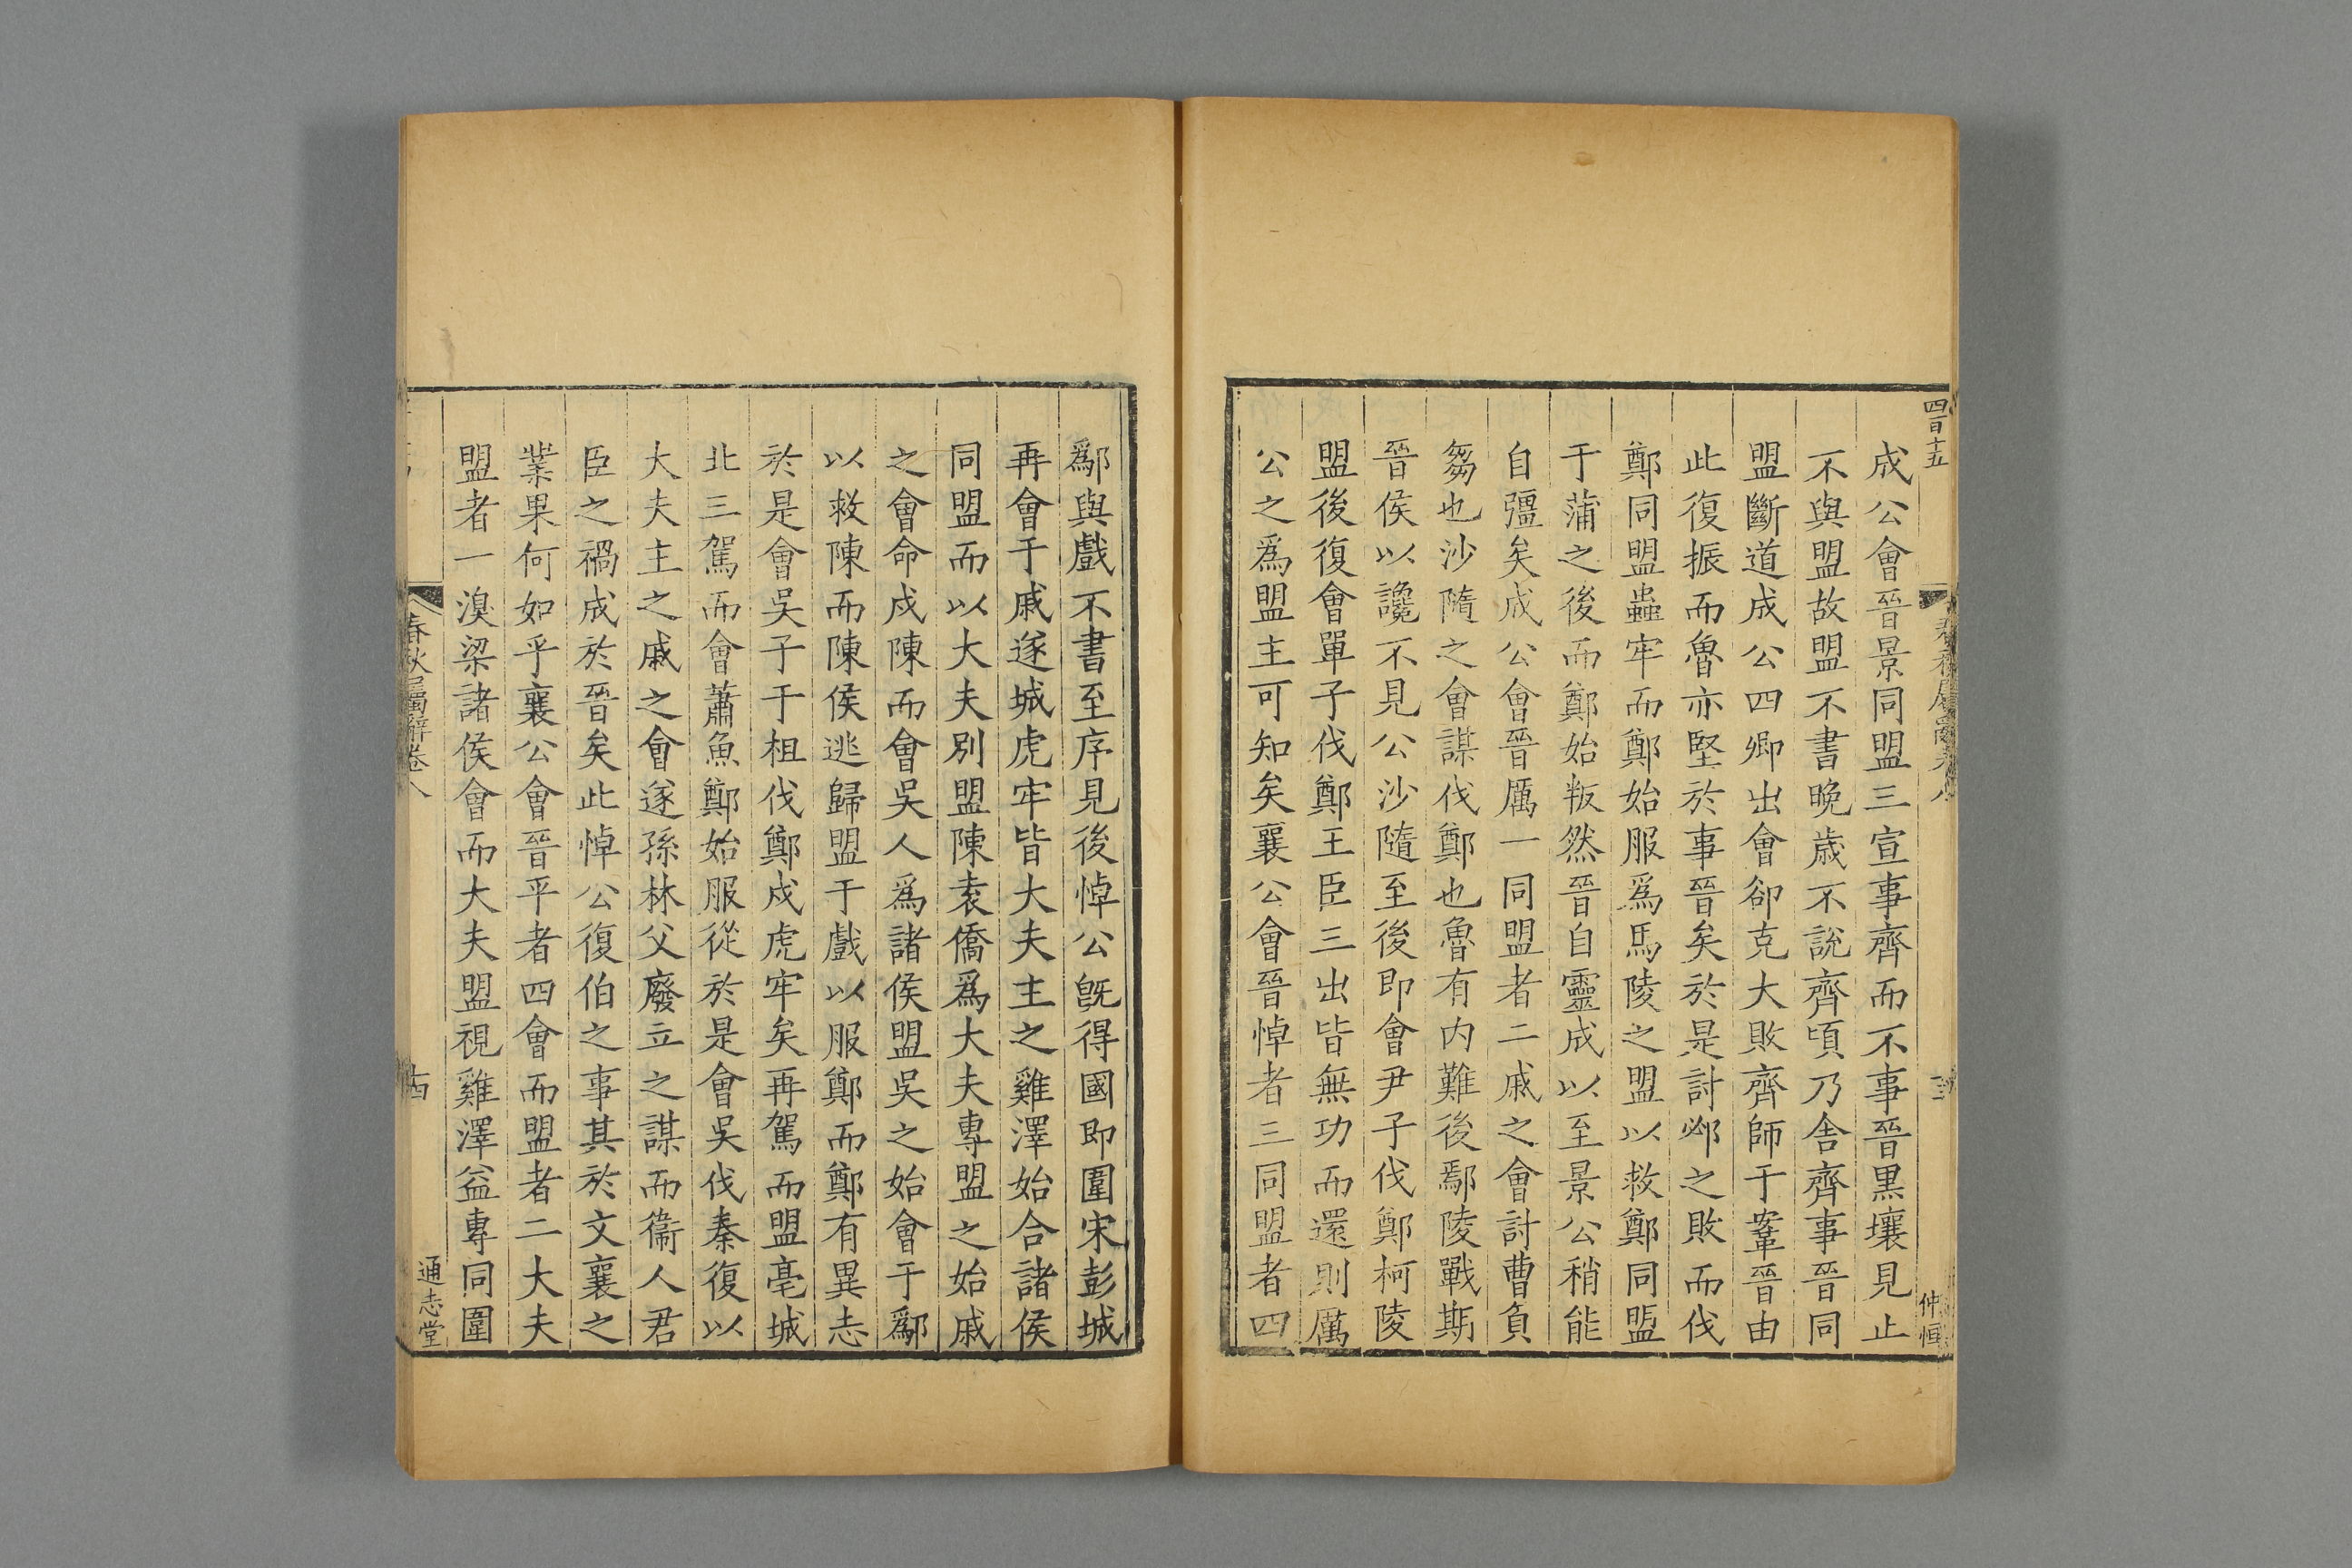 四百十五
仲恒
成公會晉景同盟三宣事齊而不事晉黒壤見止
不與盟故盟不書晚歳不說齊頃乃舍齊事晉同
盟斷道成公四卿出會郤克大敗齊師于鞌晉由
此復振而魯亦堅於事晉矣於是討邲之敗而伐
鄭同盟蟲牢而鄭始服爲馬陵之盟以救鄭同盟
于蒲之後而鄭始叛然晉自靈成以至景公稍能
自彊矣成公會晉厲一同盟者二戚之會討曹負
芻也沙隨之會謀伐鄭也魯有内難後鄢陵戰期
晉侯以讒不見公沙隨至後即會尹子伐鄭柯陵
盟後復會單子伐鄭王臣三出皆無功而還則厲
公之爲盟主可知矣襄公會晉悼者三同盟者四
鄬與戲不書至序見後悼公旣得國即圍宋彭城
再會于戚遂城虎牢皆大夫主之雞澤始合諸侯
同盟而以大夫別盟陳袁僑爲大夫專盟之始戚
之會命戍陳而會吳人爲諸侯盟吳之始會于鄬
以救陳而陳侯逃歸盟于戲以服鄭而鄭有異志
於是會吳子于柤伐鄭戍虎牢矣再駕而盟亳城
北三駕而會蕭魚鄭始服從於是會吳伐秦復以
大夫主之戚之會遂孫林父廢立之謀而衞人君
臣之禍成於晉矣此悼公復伯之事其於文襄之
業果何如乎襄公會晉平者四會而盟者二大夫
盟者一湨梁諸侯會而大夫盟視雞澤益專同圍
春秋屬辭卷八
十四
通志堂